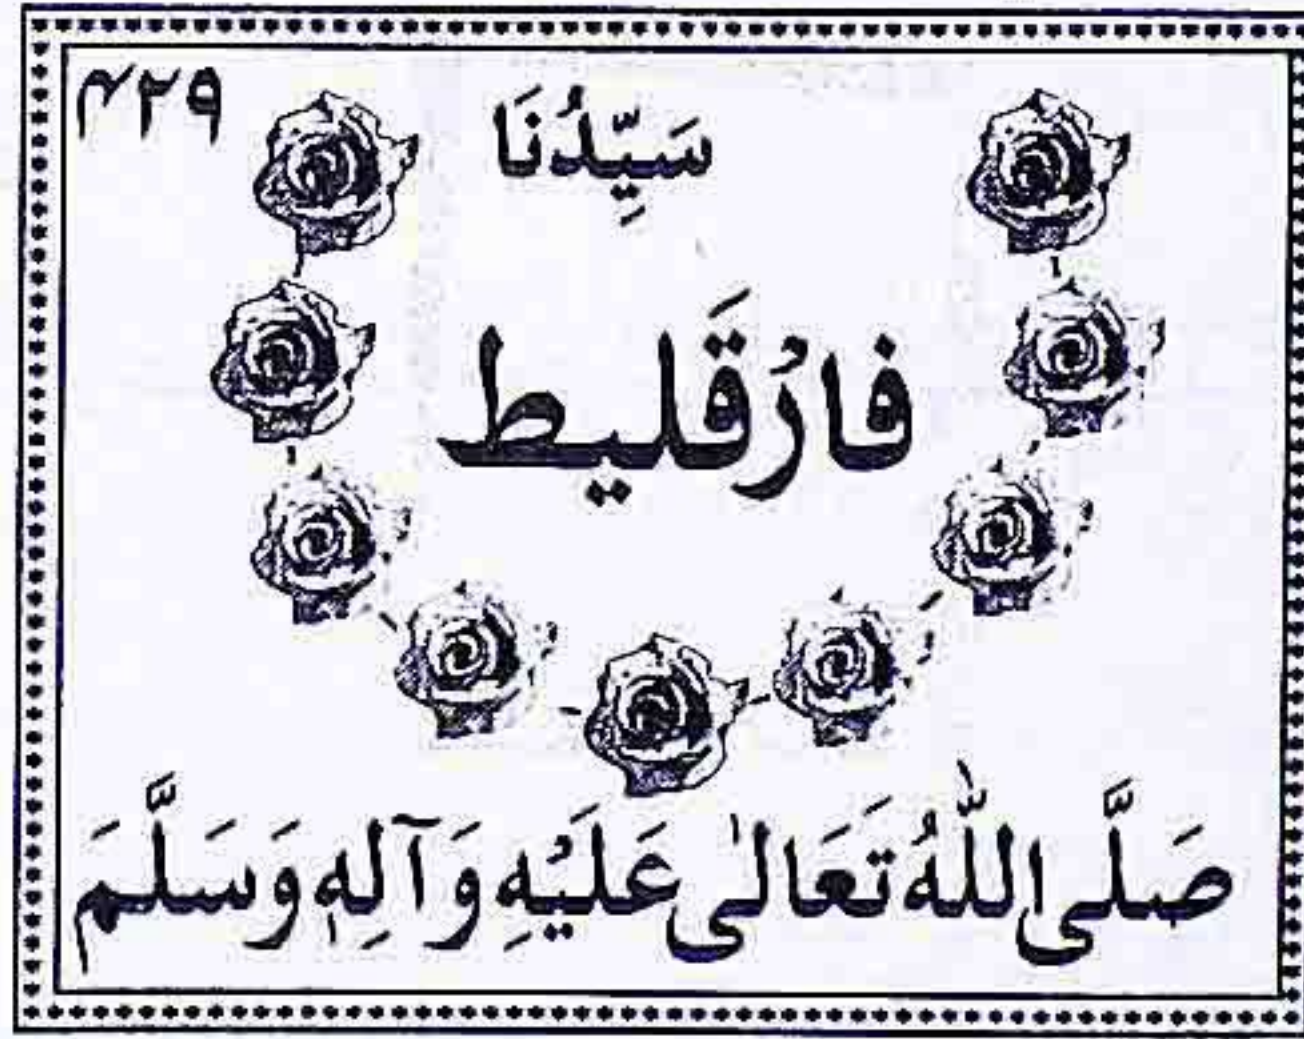 ۴۲۹
سَيِّدُنَا
فَارُقَلِيط
صَلَّى اللّٰهُ تَعَالىٰ عَلَيْهِ وَآلِهٖ وَسَلَّمَ